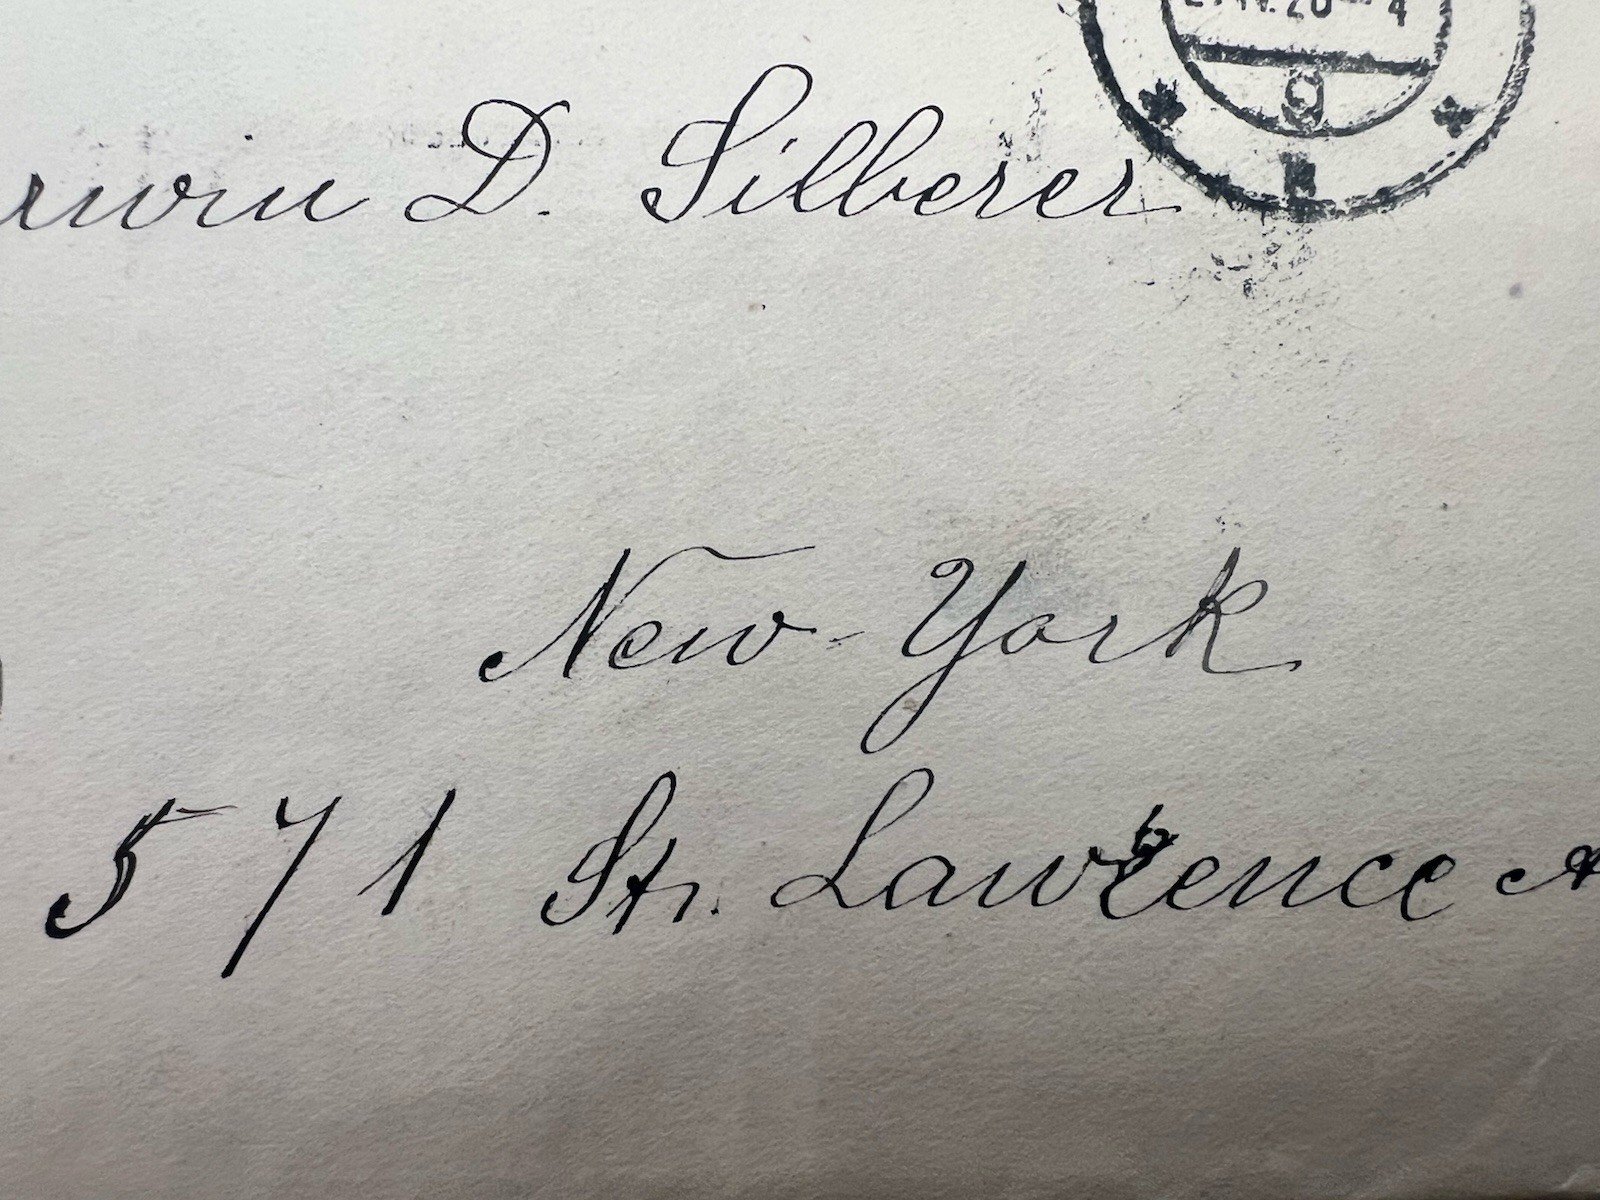 D. Silberer
New-York
571 St. Lawrence A